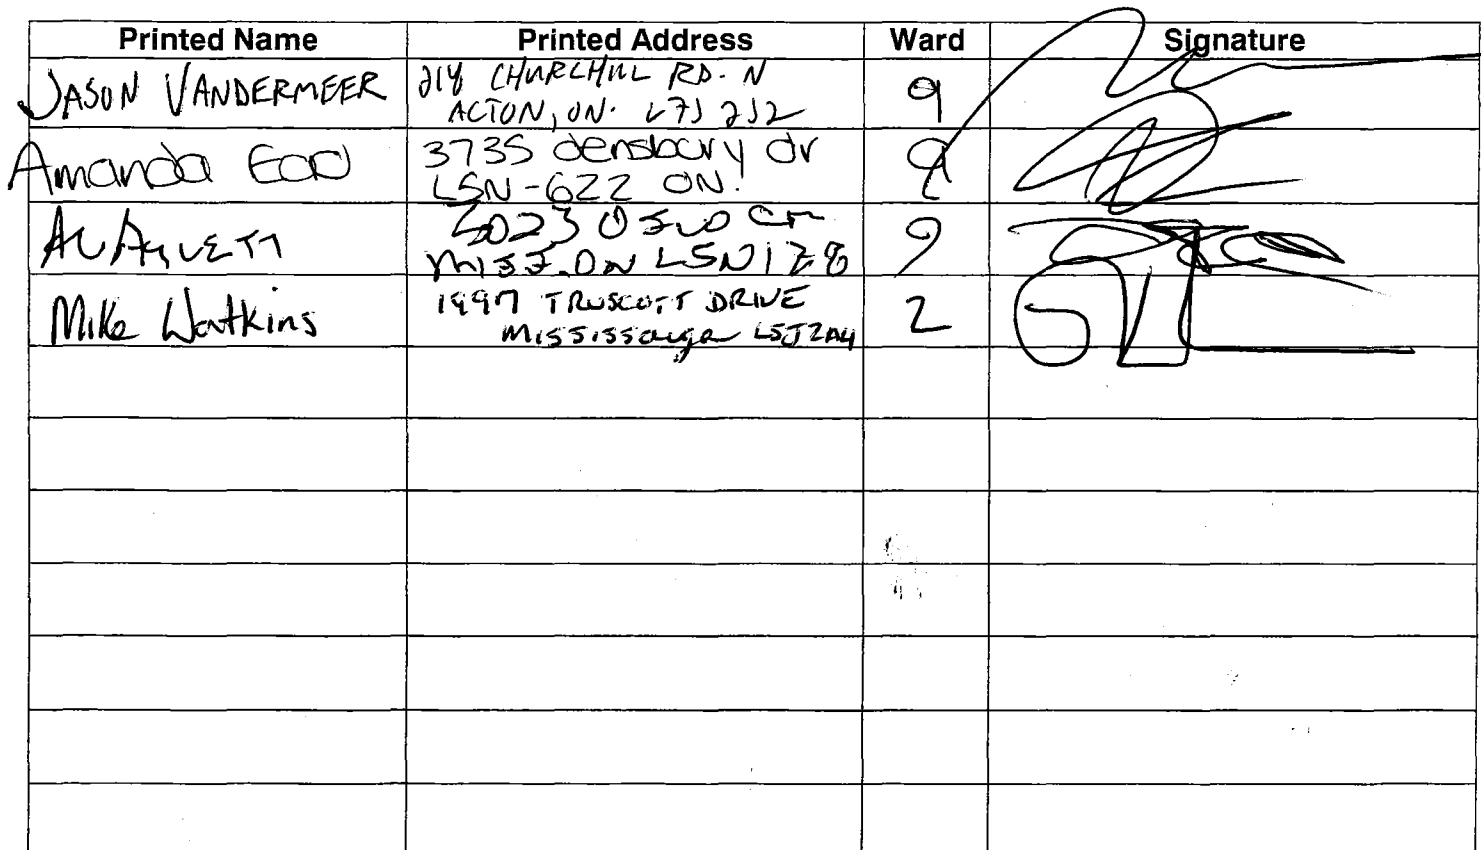 Printed Name Printed Address Ward Signature
JASON VANDERMEER 218 CHURCHILL RD. N 9
ACTON, ON. L7J 2J2
Amanda 3735 densbury dr 9
L5N-6Z2 ON.
5023 Cr 9
MISS. ON L5N1Z8
Mike Watkins 1997 TRUSCOTT DRIVE 2
Mississauga L5J2A4